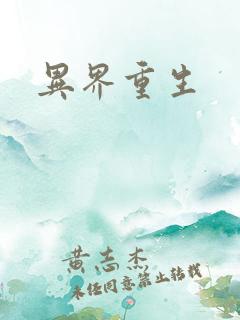 異界重生
黄志杰
未经同意禁止转载